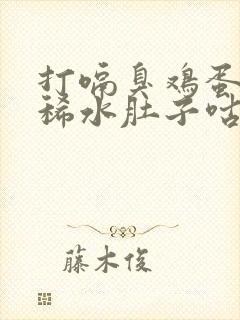 打嗝臭鸡蛋
稀水肚子咕
藤木俊